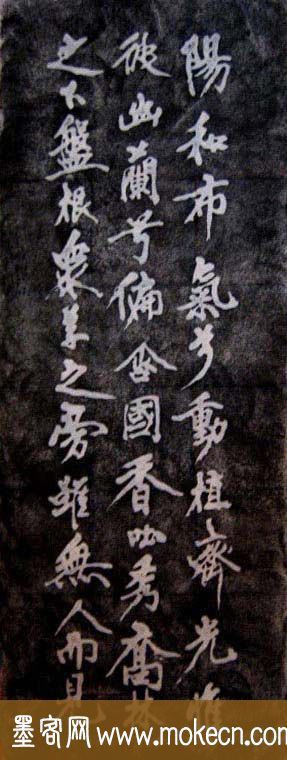 陽和布氣兮動植齊光惟
彼幽蘭兮偏含國香吐秀喬林
之下盤根衆草之旁雖無人而見
墨客网 www.mokecn.com